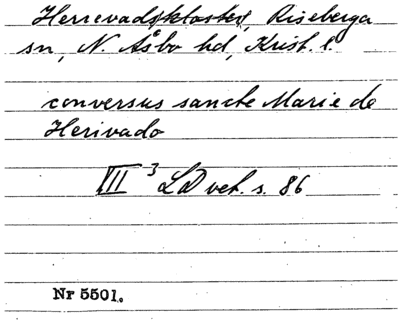 Herrevadskloster, Riseberga
sn, N. Åsbo hd, Krist. l.
conversus sancte Marie de
Herivado
VII 3 LD vet. s. 86
Nr 5501.